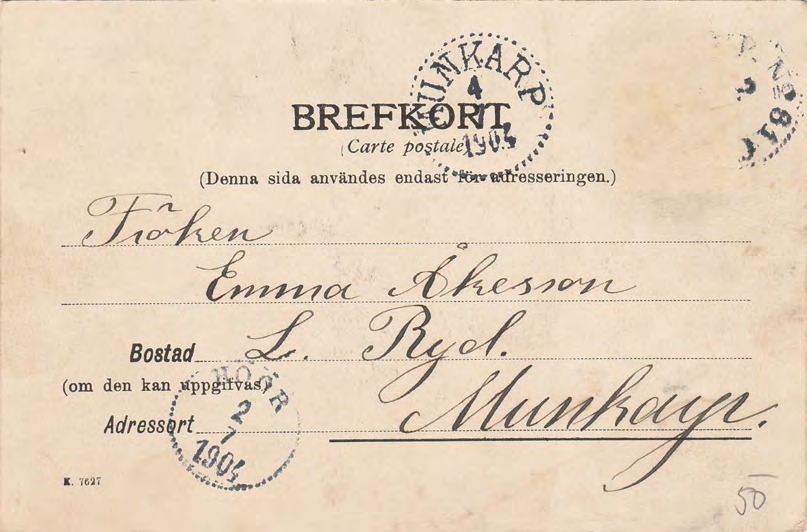 MUNKARP
4
7
1904
BREFKORT
(Carte postale)
(Denna sida användes endast för adresseringen.)
Fröken
Emma Åkesson
Bostad L. Ryd.
(om den kan uppgifvas)
Adressort Munkarp.
HÖÖR
2
7
1904
K. 7627
50